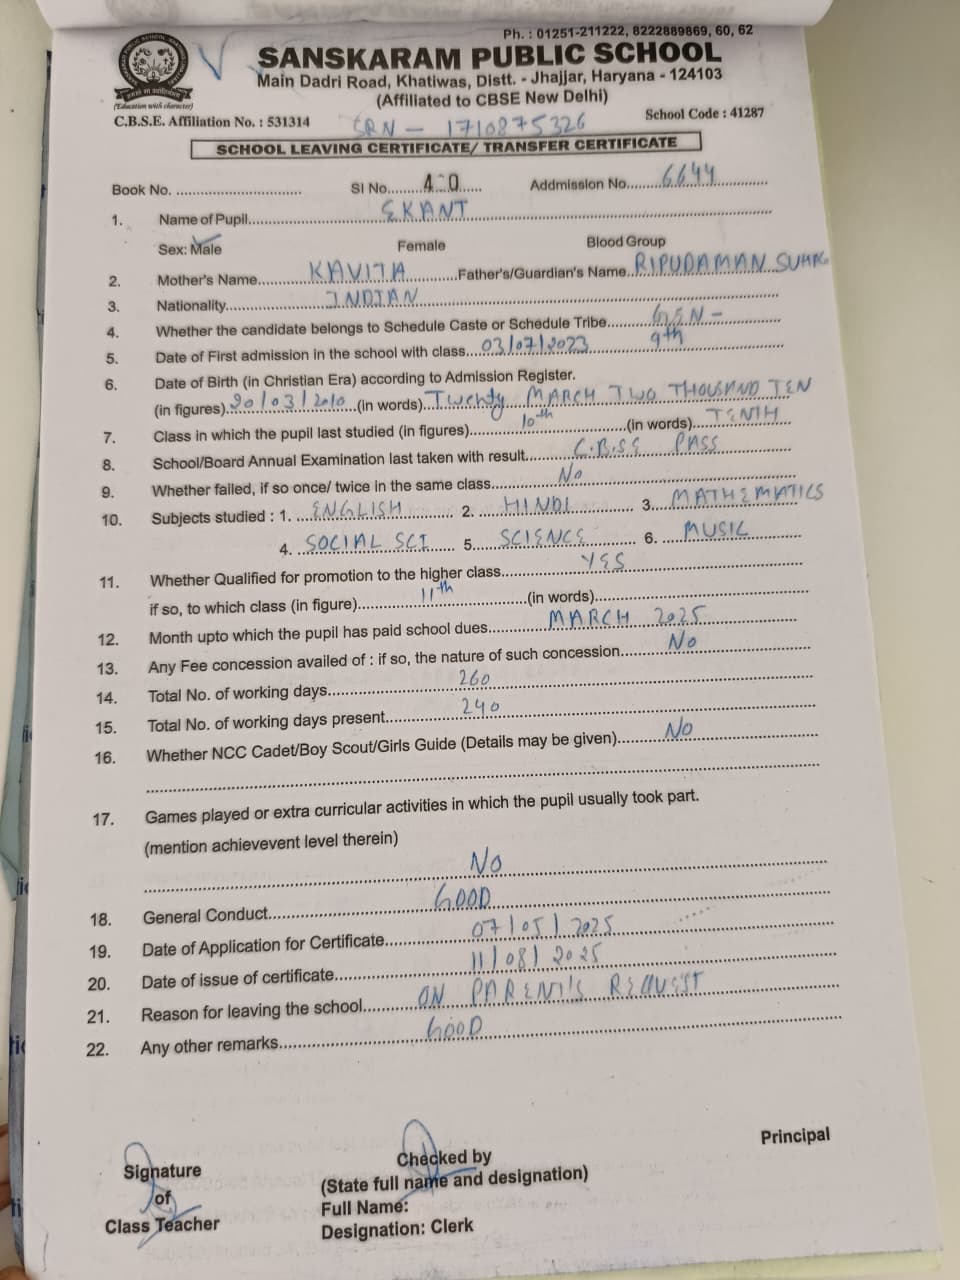 Ph. : 01251-211222, 8222889869, 60, 62
SANSKARAM PUBLIC SCHOOL
Main Dadri Road, Khatiwas, Distt. - Jhajjar, Haryana - 124103
(Affiliated to CBSE New Delhi)
(Education with character)
C.B.S.E. Affiliation No. : 531314
School Code : 41287
SRN - 1710875326
SCHOOL LEAVING CERTIFICATE/ TRANSFER CERTIFICATE
Book No. .............. Sl No....... Addmission No....6644
1. Name of Pupil....EKANT
Sex: Male Female Blood Group
2. Mother's Name....KAVITA....Father's/Guardian's Name...RIPUDAMAN
3. Nationality....INDIAN
4. Whether the candidate belongs to Schedule Caste or Schedule Tribe....GEN -
5. Date of First admission in the school with class...03/07/2023 9th
6. Date of Birth (in Christian Era) according to Admission Register.
(in figures) 20/03/2010...(in words)..Twenty MARCH TWO THOUSAND TEN
7. Class in which the pupil last studied (in figures)....10th....(in words)...TENTH
8. School/Board Annual Examination last taken with result....C.B.S.E PASS
9. Whether failed, if so once/ twice in the same class....No
10. Subjects studied : 1. ..ENGLISH.. 2. ..HINDI.. 3...MATHEMATICS
4. ..SOCIAL SCI.. 5...SCIENCE.. 6. ..MUSIC
11. Whether Qualified for promotion to the higher class....YES
if so, to which class (in figure)....11th....(in words)....
12. Month upto which the pupil has paid school dues....MARCH 2025
13. Any Fee concession availed of : if so, the nature of such concession....No
14. Total No. of working days....260
15. Total No. of working days present....240
16. Whether NCC Cadet/Boy Scout/Girls Guide (Details may be given)....No
17. Games played or extra curricular activities in which the pupil usually took part.
(mention achievevent level therein)
No
18. General Conduct....GOOD
19. Date of Application for Certificate....07/05/2025
20. Date of issue of certificate....11/08/2025
21. Reason for leaving the school....ON PARENT'S REQUEST
22. Any other remarks....GOOD
Principal
Signature
of
Class Teacher
Checked by
(State full name and designation)
Full Name:
Designation: Clerk